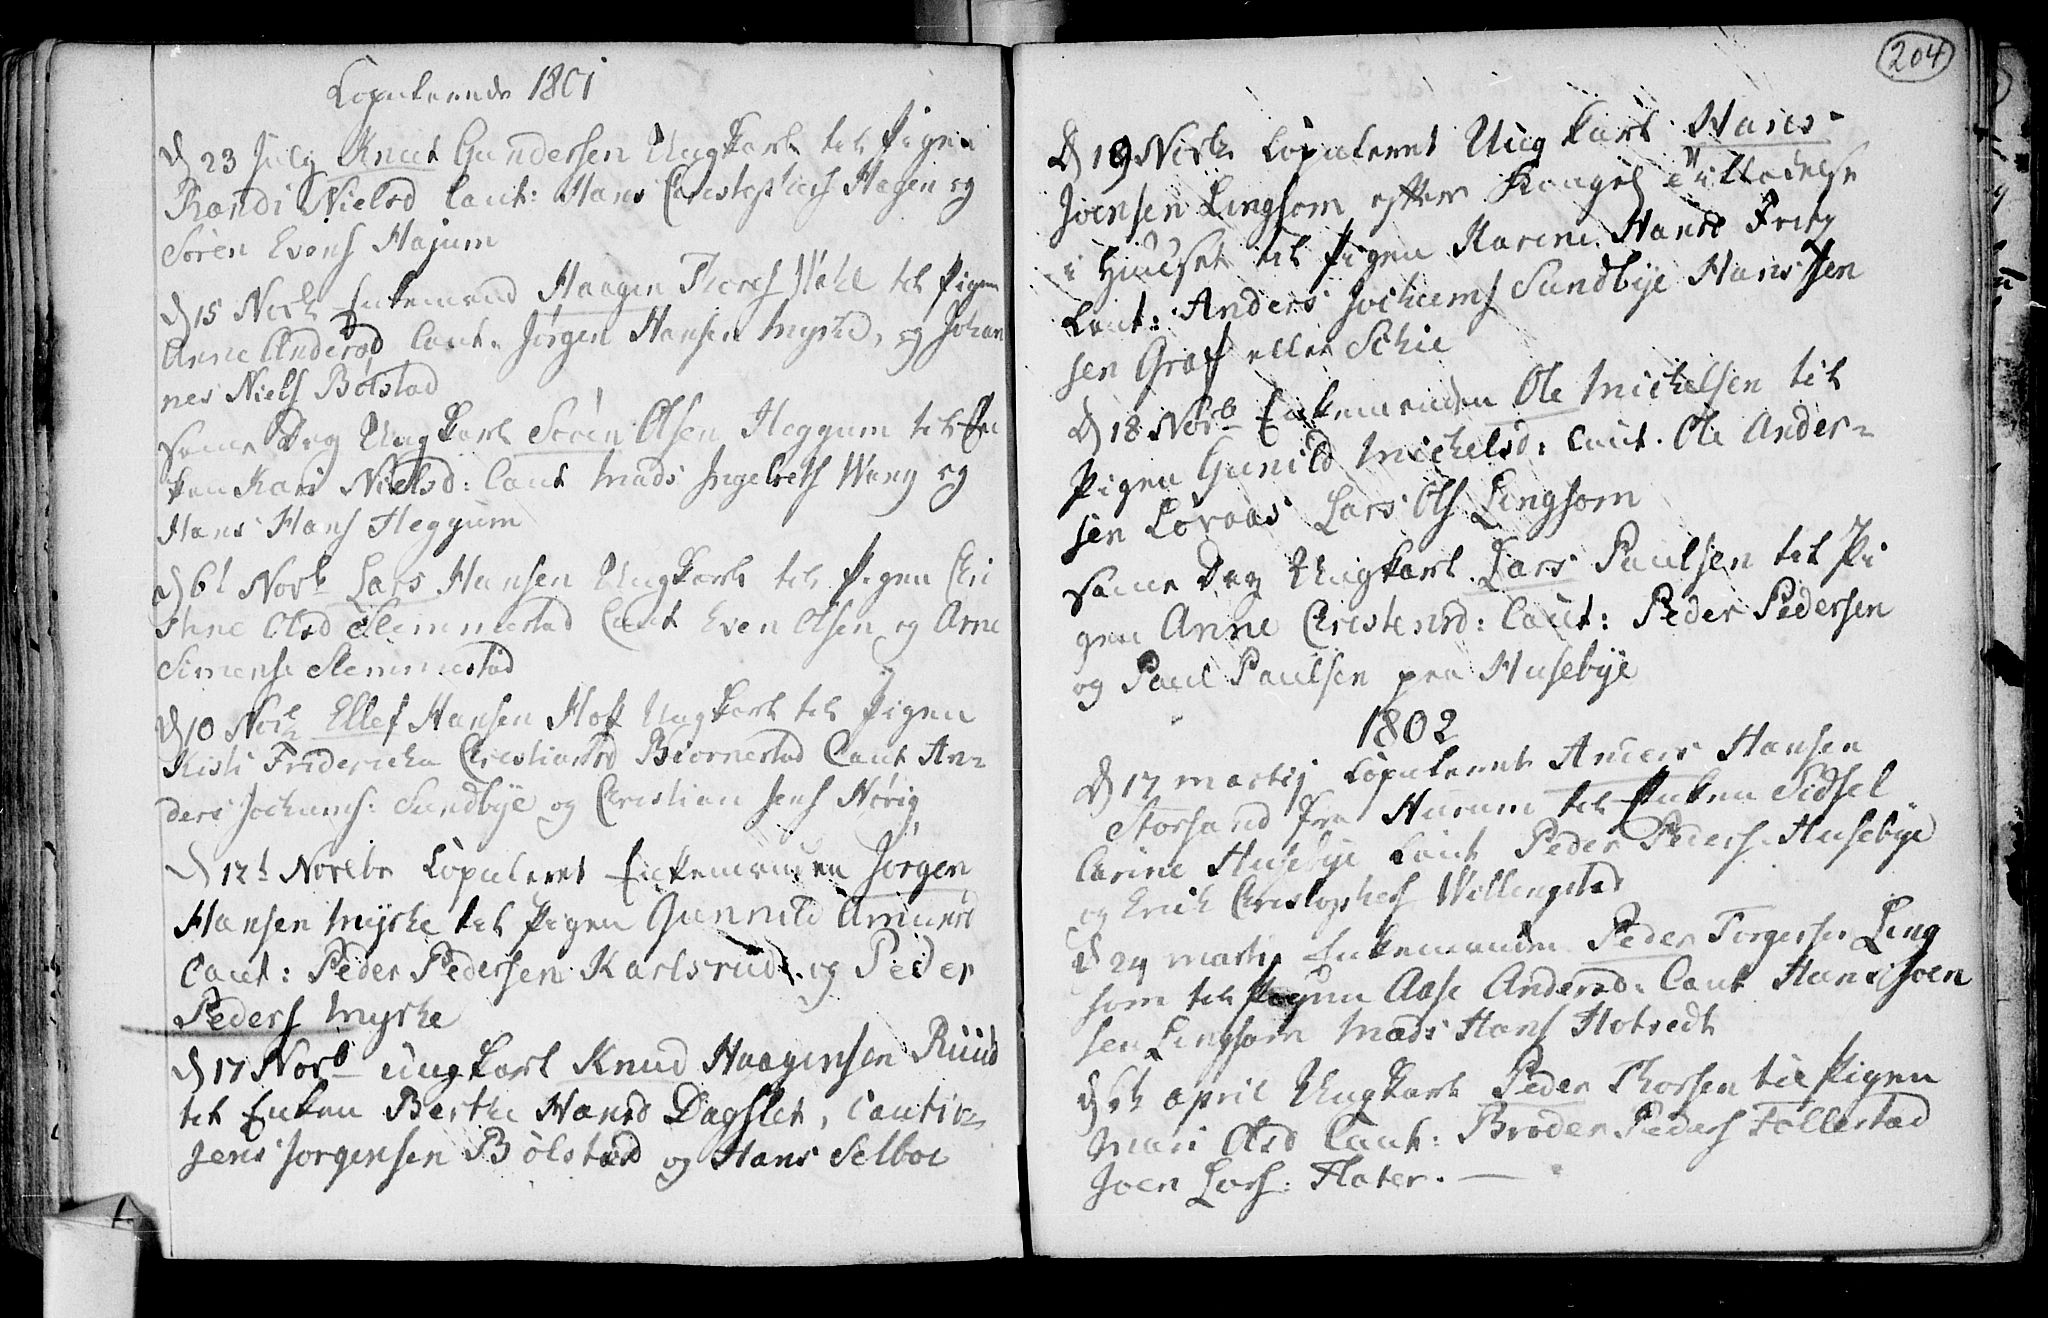 Copulerede 1801
D 23 July Knut Gundersen Ungkarl til Pigen
Randi Nielsd Caut: Hans Christophers Hagen og
Sören Evens Hajum
D 15 Novb Enkemand Haagen Thores til Pigen
Anne Andersd Caut. Jörgen Hansen Myrhe, og Johan
nes Niels Bölstad
Same Dag Ungkarl Sören Olsen Heggum til En
ken Kari Nielsd: Caut Mads Ingelreths Wang og
Hans Hans Heggum
D 6t Novb Lars Hansen Ungkarl til Pigen Chri
sthne Olsd Slemmestad Caut Even Olsen og Arne
Simens Slemmestad
D 10 Novb Ellef Hansen Hoff Ungkarl til Pigen
Kisti Fridericha Christiansd Biörnestad Caut An-
ders Jochums: Sundbÿe og Christian Jens Nörig
D 12t Novbr Copuleret Enkemanden Jörgen
Hansen Myrhe til Pigen Gunnild Amunds
Caut: Peder Pedersen Karlsrud og Peder
Peders Myrhe
D 17 Novb Ungkarl Knud Haagensen Ruud
til Enken Berthe Hansd Dagslet, Caution
Jens Jorgensen Bölstad og Hans Selboe
204
D 19 Novb Copuleret Ungkarl Hans
Joensen Lingsom efter Kongel Tilladelse
i Huuset til Pigen Karine Hansd
Caut: Anders Jochums Sundbÿe Hans Jen
sen Graf eller Schie
D 18 Novb Enkemanden Ole Michelsen til
Pigen Gunild Michelsd: Caut. Ole Ander-
sen Lovaas Lars Ols Lingsom
Same Dag Ungkarl Lars Paulsen til Pi
gen Anne Christensd: Caut: Peder Pedersen
og Paul Paulsen paa Husebÿe
1802
D 17 Martij Copuleret Anders Hansen
Storsand fra Hurum til Enken Sidsel
Carine Husebÿe Caut Peder Peders. Husebÿe
og Erich Christophers Willingstad
D 24 Martij Enkemanden Peder Torgersen Ling
som til Pigen Aase Andersd. Caut Hans Joen
sen Lingsom Mads Hans Hotvedt
D 5t April Ungkarl Peder Thorsen til Pigen
Mari Olsd Caut: Broder Peders Follestad
Joen Lars: Flater.